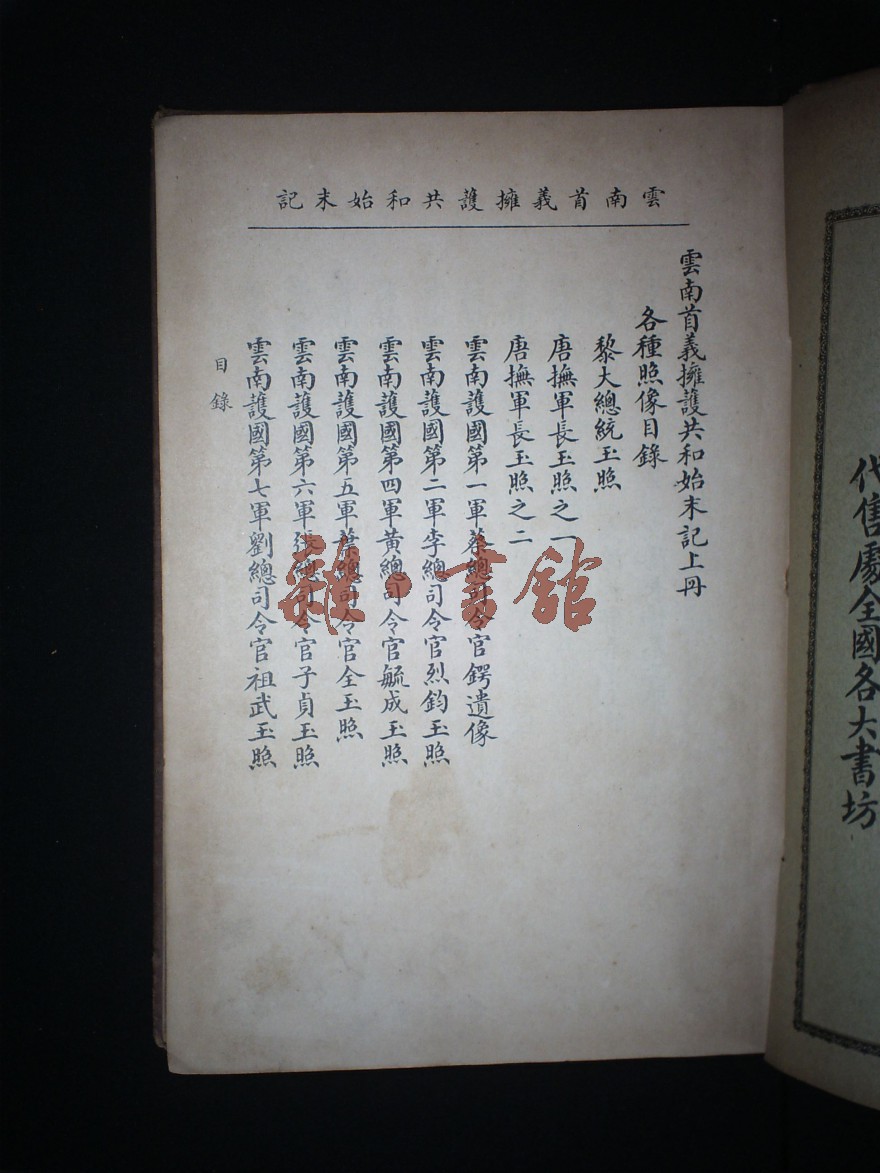 雲南首義擁護共和始末記
雲南首義擁護共和始末記上冊
各種照像目錄
黎大總統玉照
唐撫軍長玉照之一
唐撫軍長玉照之二
雲南護國第一軍蔡總司令官鍔遺像
雲南護國第二軍李總司令官烈鈞玉照
雲南護國第四軍黃總司令官毓成玉照
雲南護國第五軍葉總司令官荃玉照
雲南護國第六軍張總司令官子貞玉照
雲南護國第七軍劉總司令官祖武玉照
目錄
代售處全國各大書坊
雜·書館